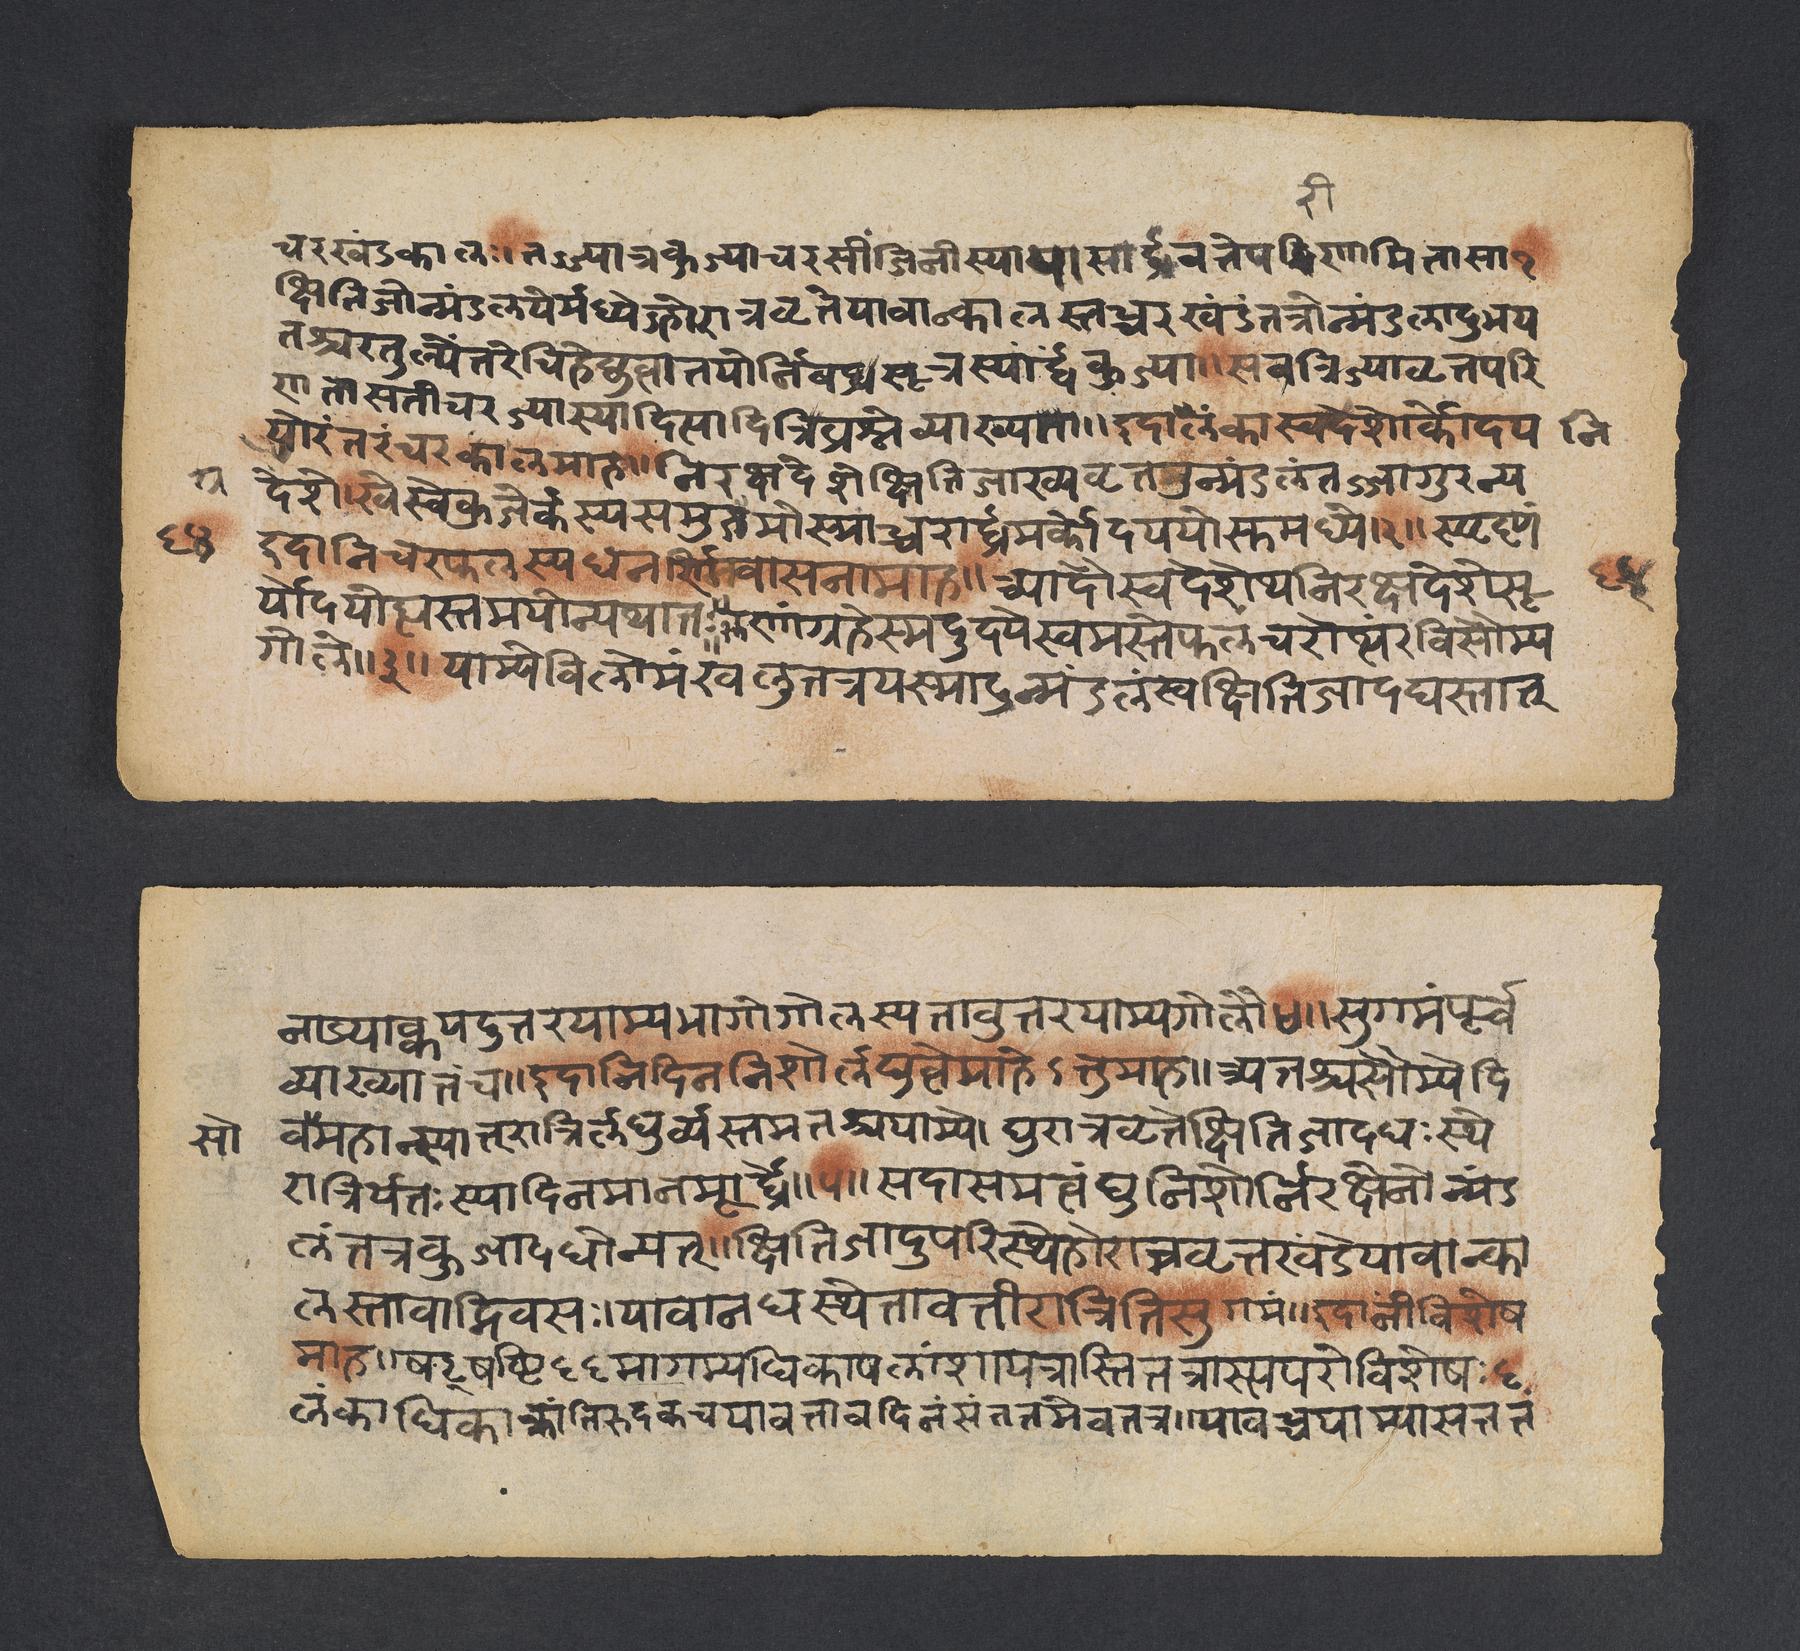 री
चरखंडकालः। तज्यात्रकुज्याचरसींजिनीस्याथ। सार्द्धवृत्तेपरिणामितासा १
क्षितिजोन्मंडलयेर्मध्येऽहोरात्रवृत्तेयावान्कालस्तच्चरखंडंतत्रोन्मंडलादुभय
तश्चरतुल्येंतरेचिह्नेकृत्वातयोर्निबद्धसूत्रस्यार्द्धंकुज्या॥ सवत्रिज्यावृत्तपरि
णतासतीचरज्यास्यादित्यादित्रिप्रश्नेव्याख्याता॥ इदालंकास्वदेशोर्कोदय नि
योरंतरंचरकालमाह॥ निरक्षदेशेक्षितिजाख्यवृत्तमुन्मंडलंतज्जागुरन्य
य देशे। स्वेस्वेकुजेर्कस्यसमुद्गमोस्माच्चरार्द्धमर्कोदययोस्तमध्ये। २॥ स्पष्टं
६४ इदानिचरफलस्यधनर्णवासनामाह॥ आदौस्वदेशेथनिरक्षदेशेसू ६४
र्योदयोह्यस्तमयोन्यथातः ऋणंग्रहेस्मदुदयेस्वमस्तेफलचरोत्थंरविसौम्य
गोले॥ ३॥ याम्येविलोमंखलुतत्रयस्मादुन्मंडलंस्वक्षितिजादधस्तात्
नाड्याह्वयदुत्तरयाम्यभागोगोलस्यतावुत्तरयाम्यगोलौ ४॥ सुगमंपूर्वं
व्याख्यातंच॥ इदानिदिननिशोर्लघुत्वेमहेऽत्तुमाह॥ अतश्चसौम्येदि
सो वसेमहान्स्यात्तरात्रिर्लघुर्व्यस्तमतश्चयाम्ये। द्युरात्रवृत्तेक्षितिजादधःस्थे
रात्रिर्यतःस्यादिनमानमूर्द्ध्वे॥ ५॥ सदासमत्वंद्युनिशोर्निरक्षेनोन्मंड
लंतत्रकुजादधोन्यत्॥ क्षितिजादुपरिस्थेहोरात्रवृत्तखंडेयावान्का
लस्तावाद्दिवसः। यावानधस्थेतावतीरात्रितिसुगमं॥ इदानींविशेष
माह॥ षट्षष्टि ६६ भागभ्यधिकापलांशायत्रास्तितत्रास्यपरोविशेषः ६
लंकाधिकाक्रांतिरुदकचयावत्तावदिनंसंततमेवतत्र॥ यावच्चयाम्यासततं